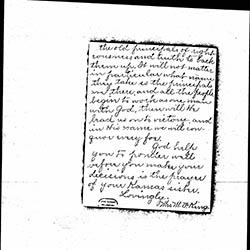 the old principals of right-
eousness and truth to back
them up. It will not matter
in particular what name
they take is the principal
in there, and all the people
begin to work as one man
with God, then will He
lead us on to victory, and
in His name we will con-
quor every foe.
God help
you to ponder well
before you make your
decisions is the prayer
of your Kansas sister.
Lovingly,
King